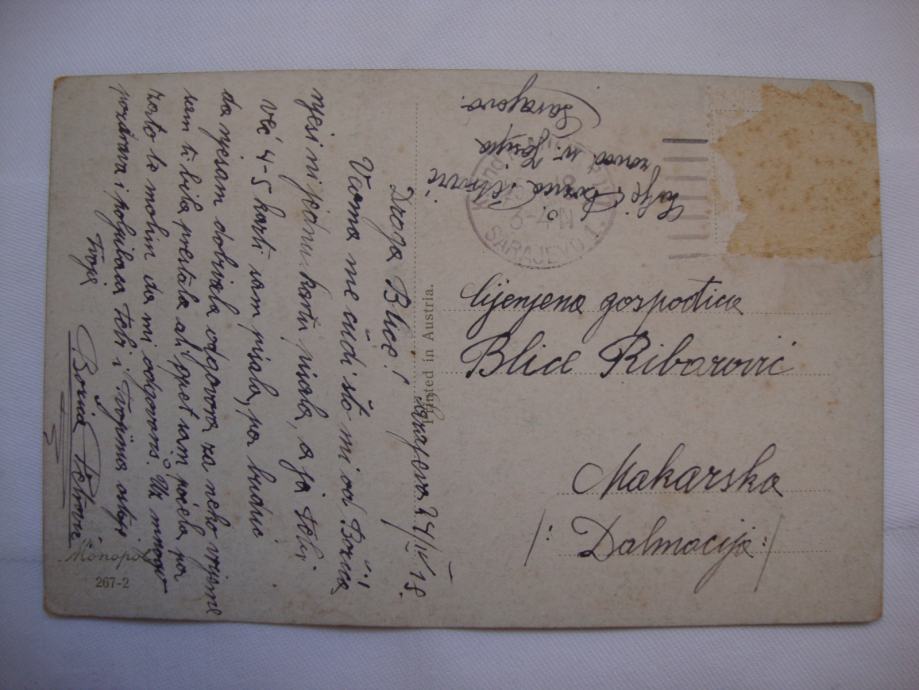 Sarajevo 24/IV 18.
Draga Blice!
Veoma me čudi što mi od Božića
nijesi ni jednu kartu pisala, a ja tebi
već 4-5 karti sam pisala, pa budući
da nijesam dobivala odgovora za neko vrijeme
sam ti bila prestala ali opet sam počela, pa
zato te molim da mi odgovoriš. Uz mnogo
pozdrava i poljubaca Tebi i Tvojima ostaje
Tvoja
Petrović
Monopol
267-2
Printed in Austria.
Šalje: Petrović
zavod sv. Josipa
Sarajevo.
SARAJEVO 1
Cijenjena gospođica
Blice Ribarović
Makarska
/: Dalmacija :/